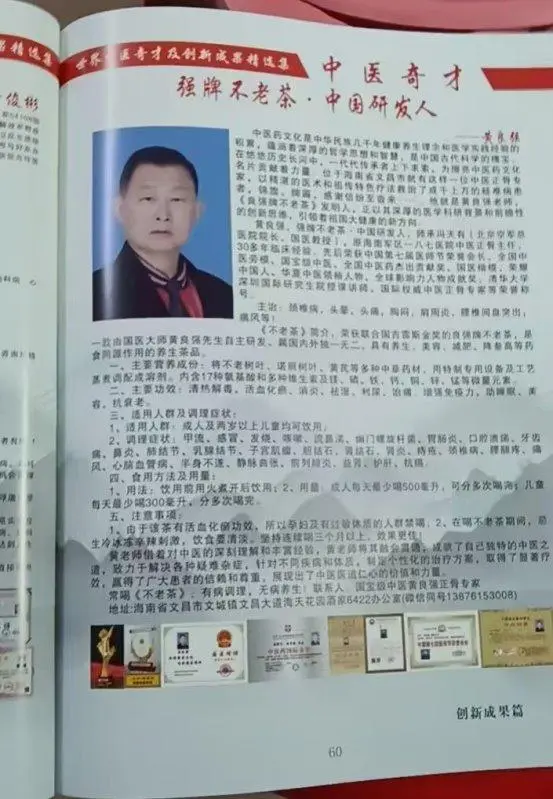 世界中医奇才及创新成果精选集
中医奇才
强牌不老茶·中国研发人
——黄良强
中医药文化是中华民族几千年健康养生理念和医学实践经验的
积累,蕴涵着深厚的哲学思想和智慧,是中国古代科学的瑰宝。
在悠悠历史长河中,一代代传承者上下求索,为擦亮中医药文化
名片贡献着力量。位于海南省文昌市就有这样一位中医正骨专
家,以精湛的医术和祖传特色疗法救治了成千上万的疑难病患
者,锦旗、牌匾、感谢信纷至沓来……他就是黄良强老师,
《良强牌不老茶》发明人,正以其深厚的医学科研背景和前瞻性
的创新思维,引领着祖国大健康的新方向。
黄良强,强牌不老茶·中国研发人,师承冯天有(北京空军总
医院院长、国医教授),原海南军区一八七医院中医正骨主任,
30多年临床经验。先后荣获中国第七届医师节荣誉会长、全国中
医劳模、国宝级中医、全国中医药杰出贡献奖、国医楷模、荣耀
中国人、华夏中医领袖人物、全球影响力人物成就奖,清华大学
深圳国际研究生院授课讲师、国际权威中医正骨专家等荣誉称
号。
主治:颈椎病,头晕、头痛,胸闷,肩周炎,腰椎间盘突出;
痛风等!
《不老茶》简介:荣获联合国吉雷斯金奖的良强牌不老茶,是
一款由国医大师黄良强先生自主研发、属国内外独一无二,具有养生、美容、减肥、降参高等药
食同源作用的养生茶品。
一、主要营养成份:将不老树叶、诺丽树叶、黄芪等多种中草药材,用特制专用设备及工艺
蒸煮调配成溶剂。内含17种氨基酸和多种维生素及镁、磷、铁、钙、铜、锌、锰等微量元素。
二、主要功效:清热解毒、活血化瘀、消炎、祛湿、利尿、治痛,增强免疫力、助睡眠、美
容、抗衰老。
三、适用人群及调理症状:
1、适用人群:成人及两岁以上儿童均可饮用;
2、调理症状:甲流、感冒、发烧、咳嗽、流鼻涕、幽门螺旋杆菌、胃肠炎、口腔溃疡、牙齿
痛、鼻炎、肺结节、乳腺结节、子宫肌瘤、胆结石、肾结石、肾炎、痔疮、颈椎病、腰腿疼、痛
风、心脑血管病、半身不遂、静脉曲张、前列腺炎、益肾、护肝、抗癌。
四、食用方法及用量:
1、用法:饮用前用火煮开后饮用;2、用量:成人每天最少喝500毫升,可分多次喝完;儿童
每天最少喝300毫升,分多次喝完。
五、注意事项:
1、由于该茶有活血化瘀功效,所以孕妇及有过敏体质的人群禁喝;2、在喝不老茶期间,忌
生冷冰冻辛辣刺激,饮食要清淡。坚持连续喝三个月以上,效果更佳!
黄老师借着对中医的深刻理解和丰富经验,黄老师将其融会贯通,成就了自己独特的中医之
道,致力于解决各种疑难杂症,针对不同疾病和体质,制定个性化的治疗方案,取得了显著疗
效,赢得了广大患者的信赖和尊重,展现出了中医医道仁心的价值和力量。
常喝《不老茶》:有病调理,无病养生!联系人:国宝级中医黄良强正骨专家
地址:海南省文昌市文城镇文昌大道海天花园酒家6422办公室(微信同号13676153008)
创新成果篇
60